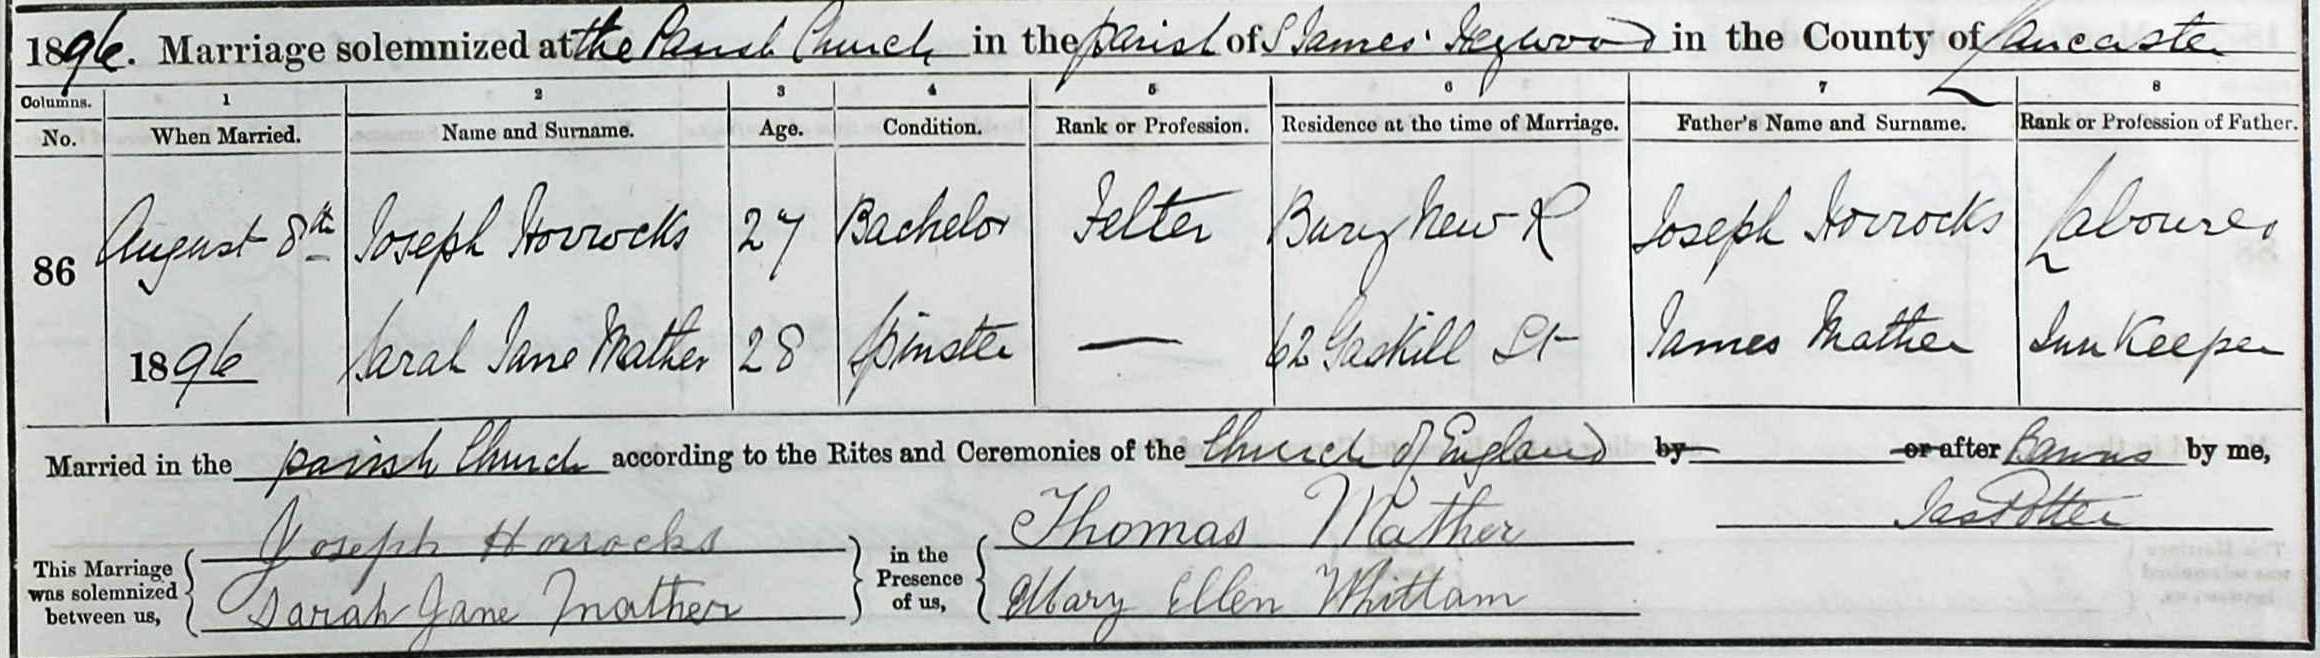 1896. Marriage solemnized at the Parish Church in the parish of S James' Heywood in the County of Lancaster
Columns. 1 2 3 4 5 6 7 8
No. When Married. Name and Surname. Age. Condition. Rank or Profession. Residence at the time of Marriage. Father's Name and Surname. Rank or Profession of Father.
August 8th Joseph Horrocks 27 Bachelor Felter Bury New R Joseph Horrocks Labourer
86
1896 Sarah Jane Mather 28 Spinster — 62 Gaskill St James Mather Inn Keeper
Married in the parish Church according to the Rites and Ceremonies of the Church of England by or after Banns by me,
Jas Potter
Joseph Horrocks Thomas Mather
This Marriage was solemnized between us, in the Presence of us,
Sarah Jane Mather Mary Ellen Whittam